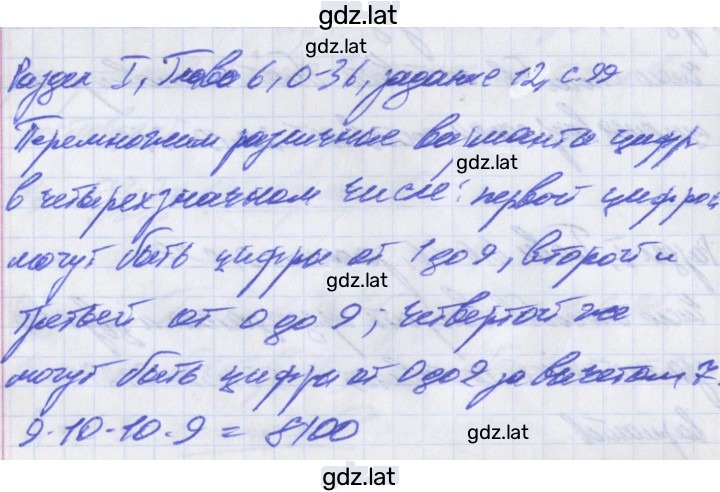 gdz.lat
gdz.lat
Раздел I, Глава 6, 0-36, задание 12, с.99
Перемножим различные варианты цифр
gdz.lat
в четырехзначном числе: первой цифрой
могут быть цифры от 1 до 9, второй и
gdz.lat
третьей от 0 до 9; четвертой же
могут быть цифры от 0 до 9 за вычетом 7
9·10·10·9 = 8100
gdz.lat
gdz.lat